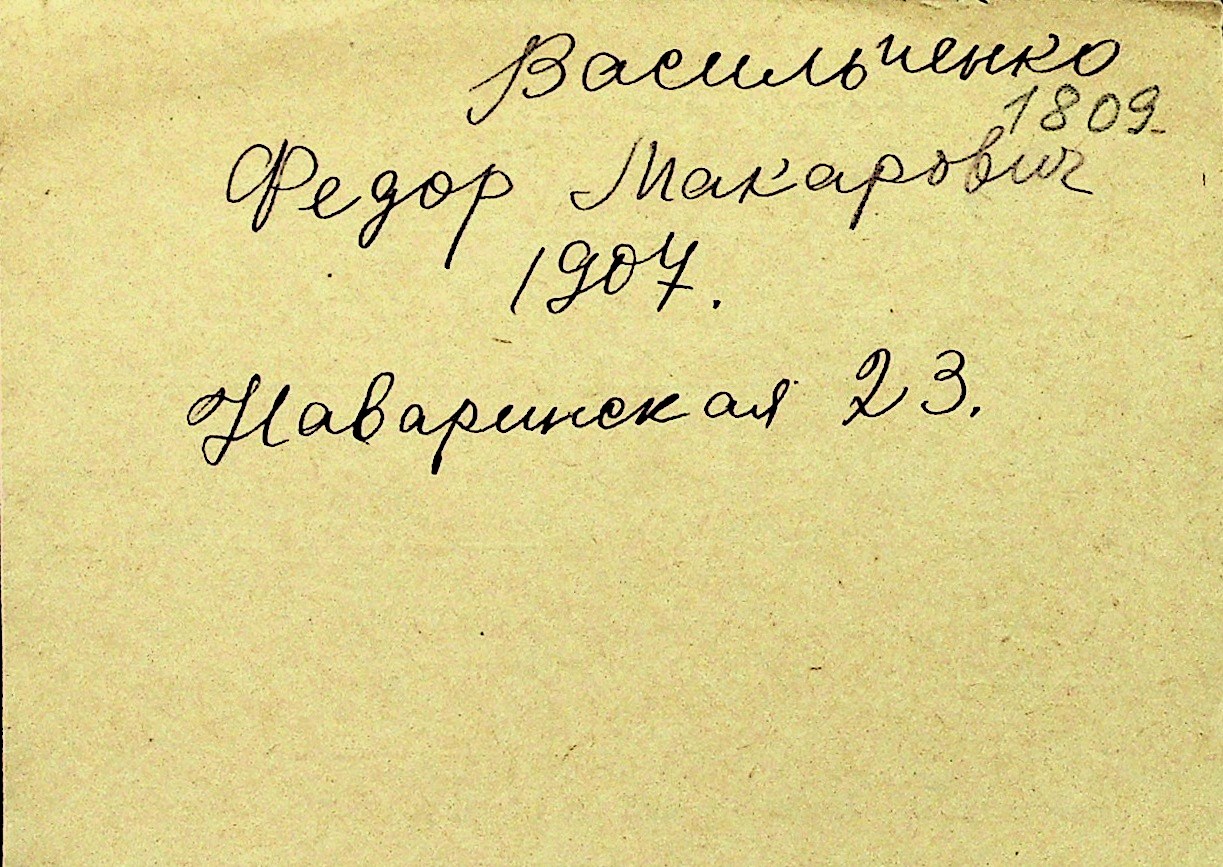 Васильченко
1809
Федор Макарович
1907.
Наваринская 23.